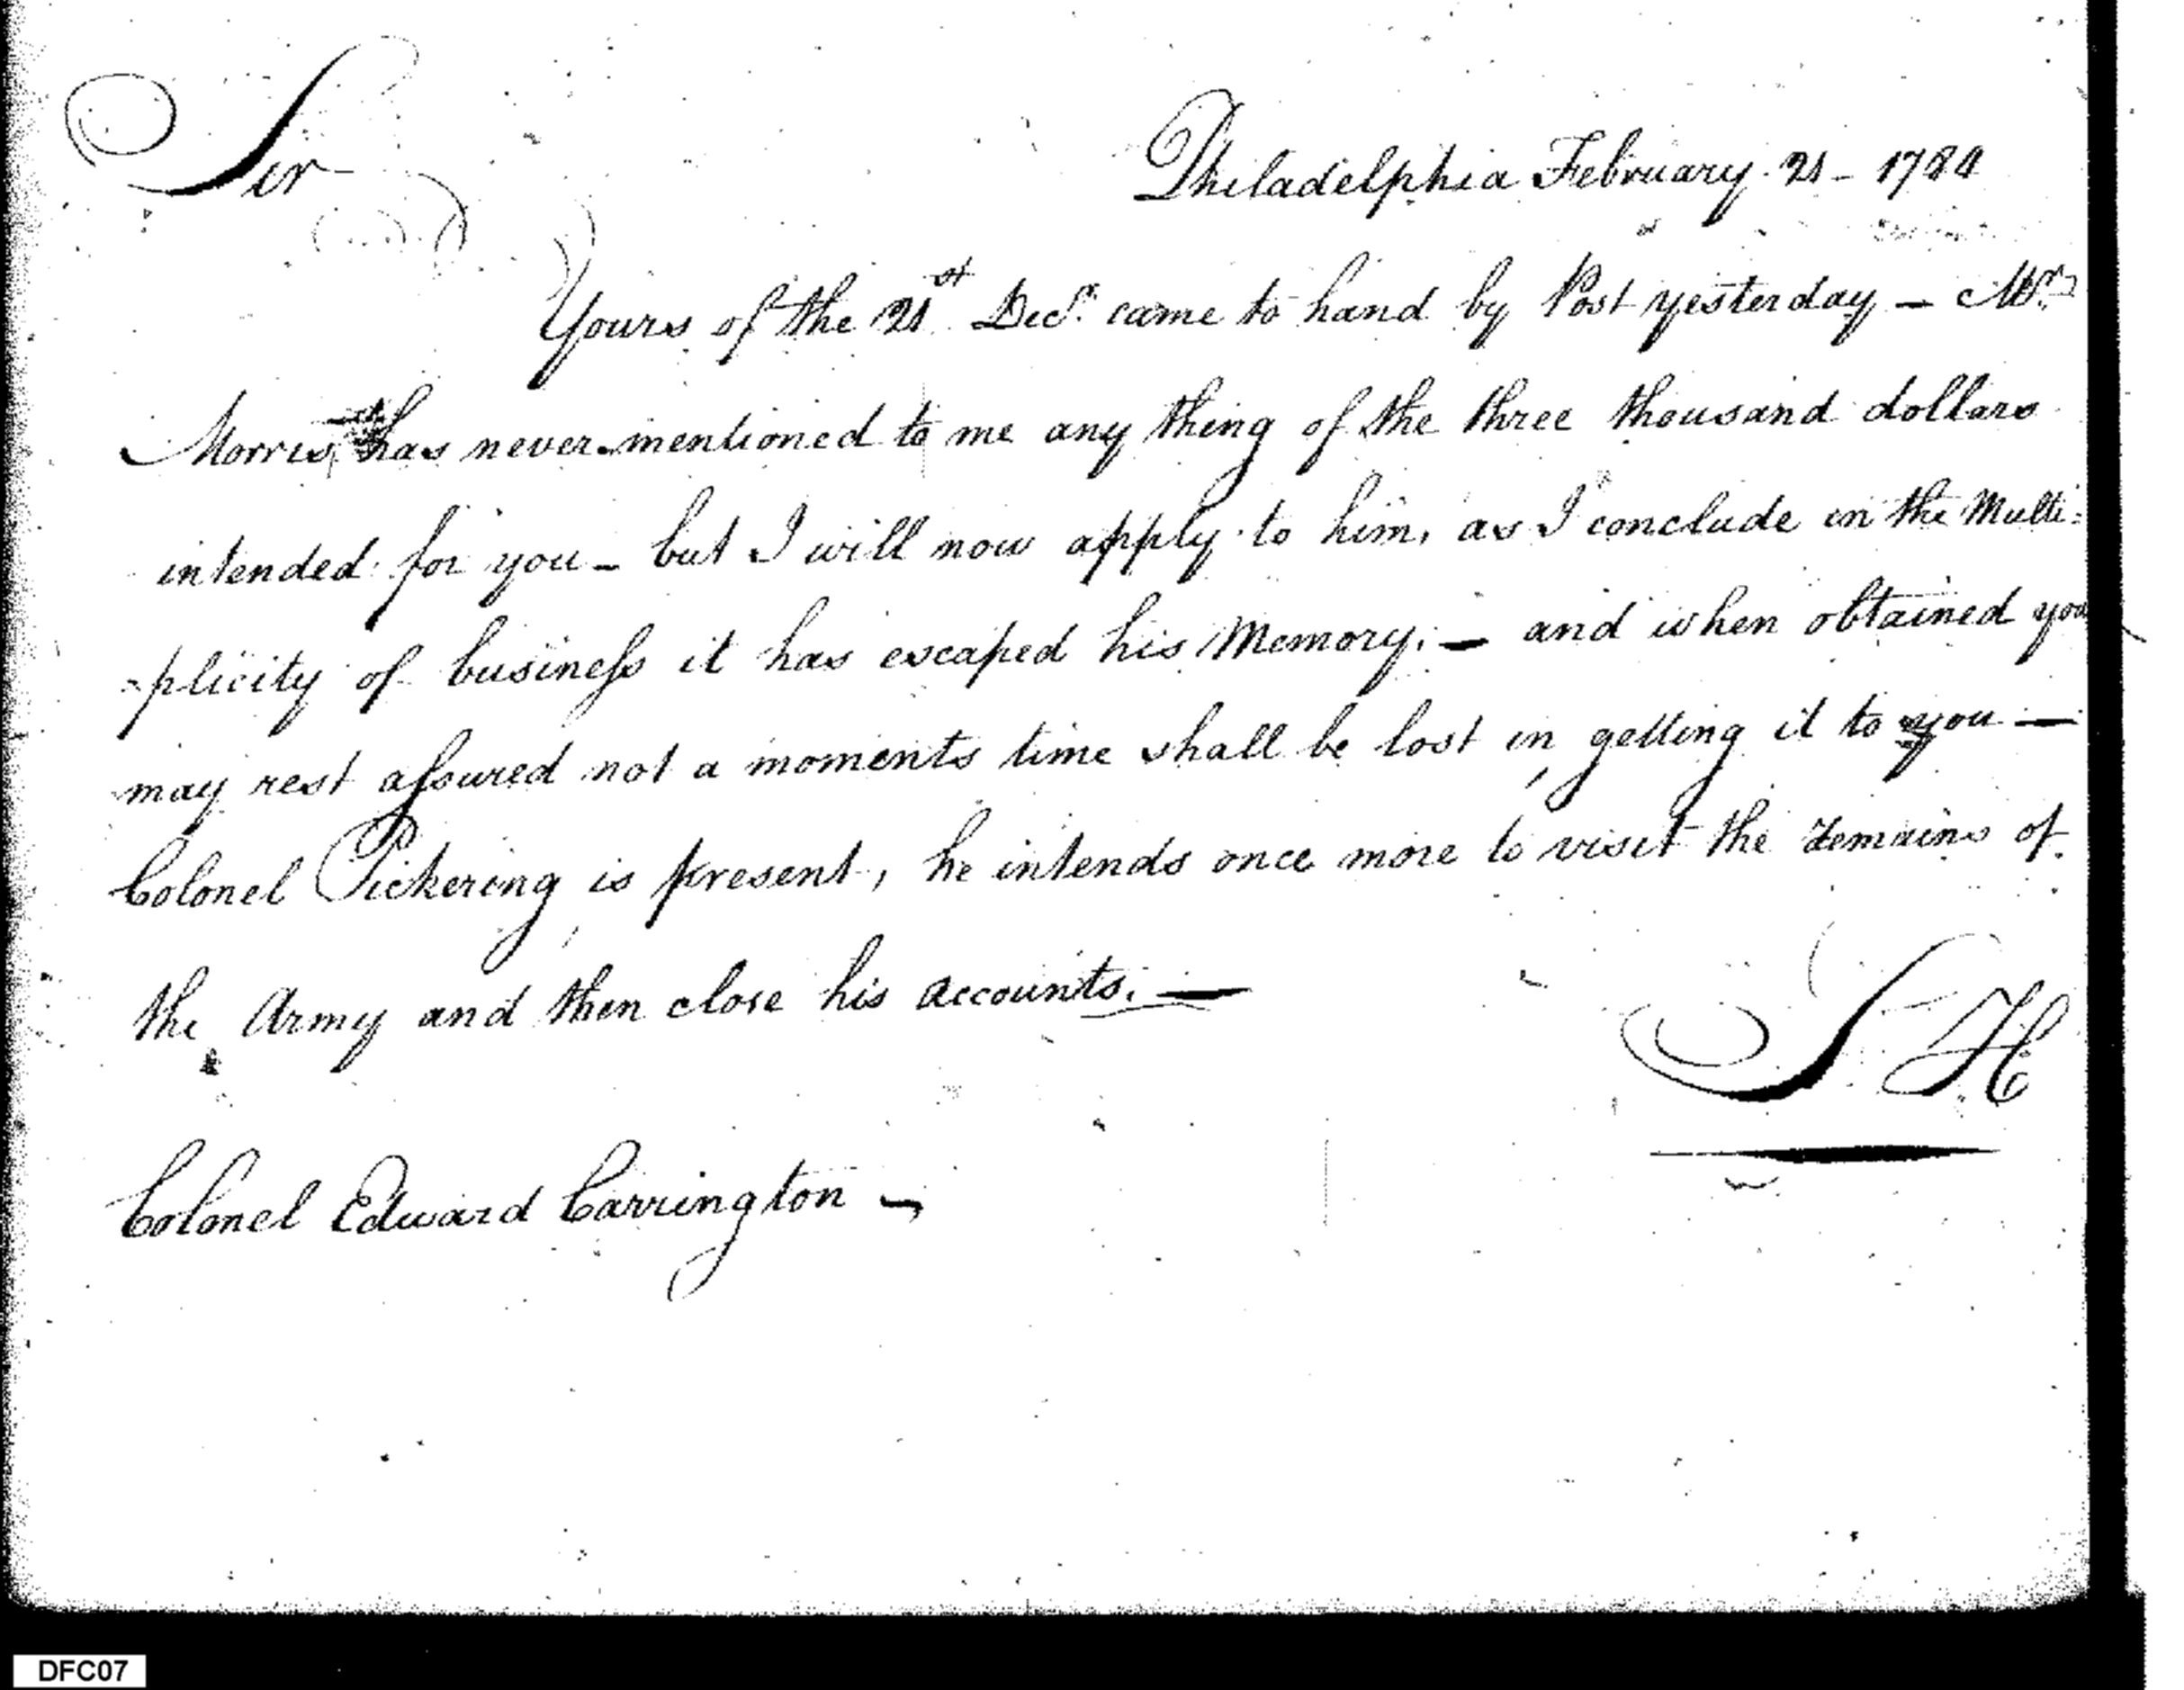 Sir
Philadelphia February 21 - 1784
Yours of the 21st Decr. came to hand by Post yesterday — Mr.
Morris, has never mentioned to me any thing of the three thousand dollars
intended for you - but I will now apply to him, as I conclude in the Multi=
=plicity of business it has escaped his Memory. — and when obtained you
may rest assured not a moments time shall be lost in getting it to you —
Colonel Pickering is present, he intends once more to visit the remains of
the Army and then close his accounts. —
S H
Colonel Edward Carrington -
DFC07